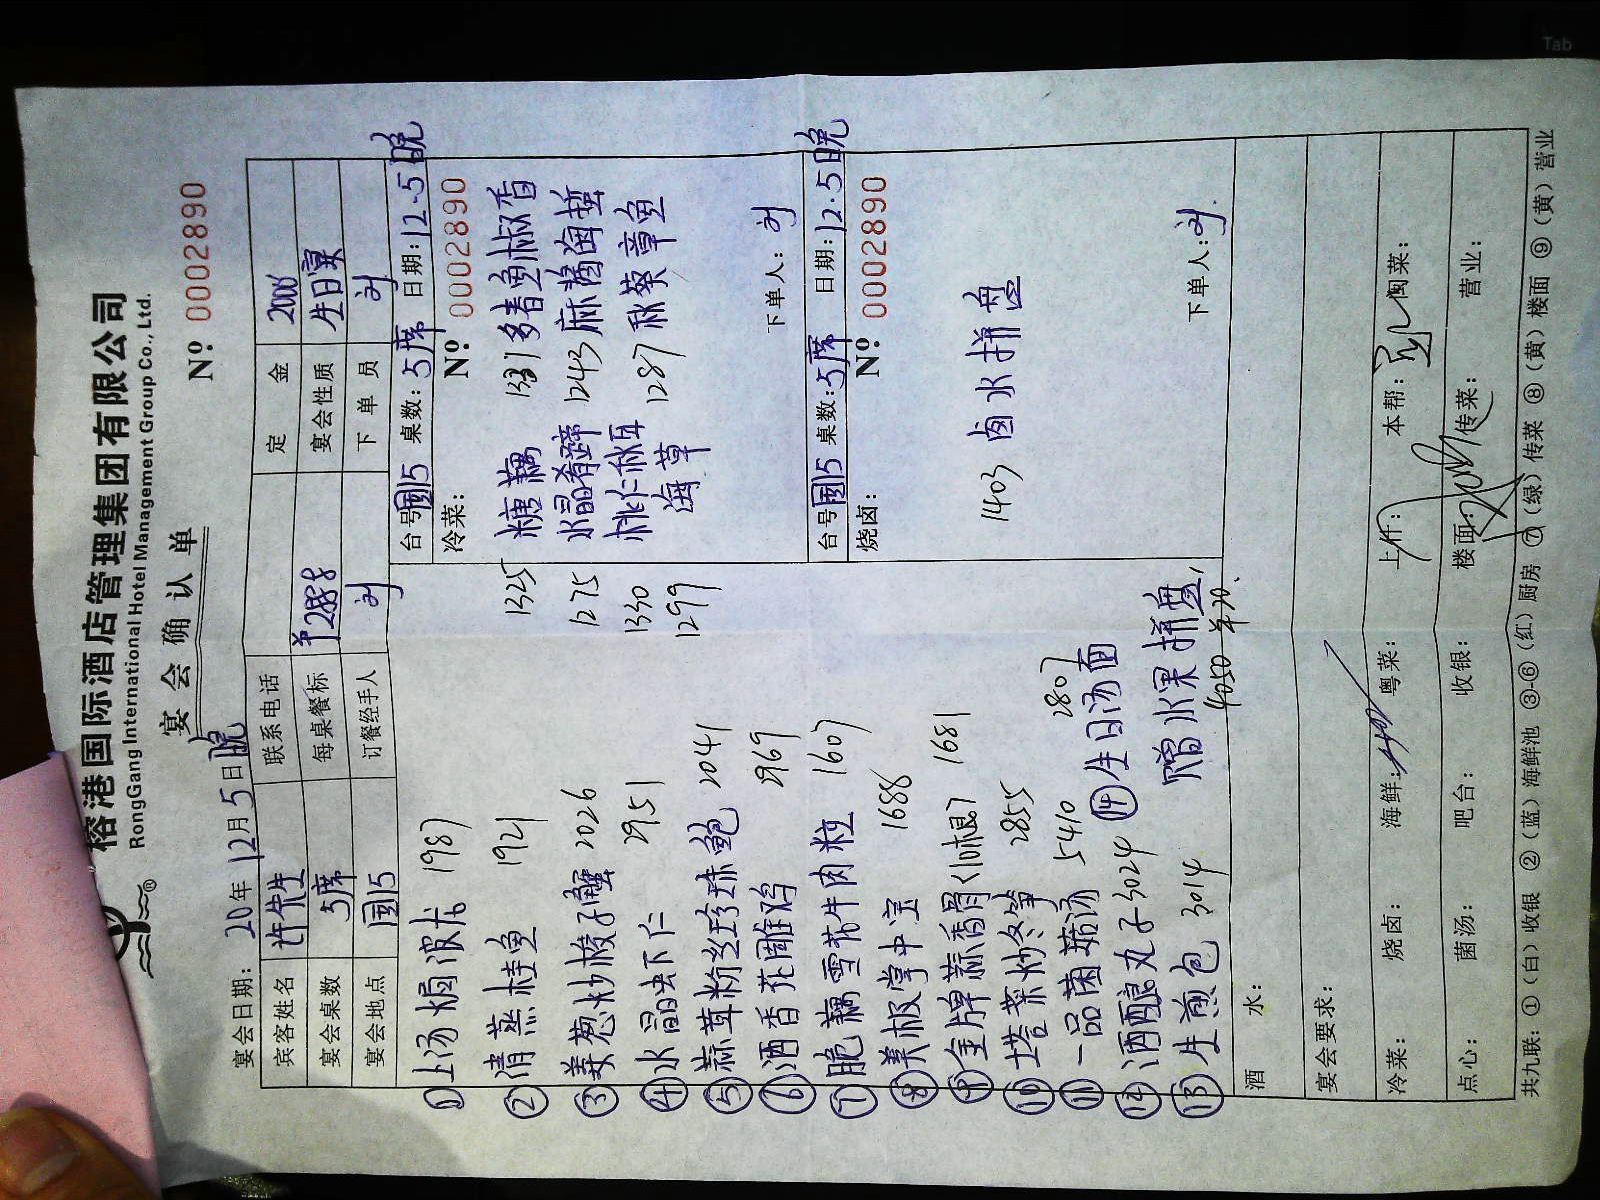 榕港国际酒店管理集团有限公司
RongGang International Hotel Management Group Co., Ltd.
宴会确认单
宴会日期: 20 年 12月 5 日 晚
Nº: 0002890
宾客姓名 许先生 联系电话 定金 2000
宴会桌数 5席 每桌餐标 2888 宴会性质 生日宴
宴会地点 国5 订餐经手人 刘 下单员 刘
① 上汤焗波龙 1987
② 清蒸桂鱼 1921
③ 姜葱炒梭子蟹 2026
④ 水晶虾仁 2951
⑤ 蒜茸粉丝珍珠鲍 2041
⑥ 酒香花雕鸡 2969
⑦ 脆藕雪花牛肉粒 1607
⑧ 美极掌中宝 1688
⑨ 金牌蒜香骨(10根) 1681
⑩ 塔菜炒冬笋 2855
⑪ 一品菌菇汤 5410
⑫ 酒酿丸子 3024
⑬ 生煎包 3014
⑭ 生日汤面 2807
赠水果拼盘
台号 国5 桌数: 5席 日期: 12.5晚
冷菜: Nº: 0002890
1325 糖藕 1331 多春鱼椒香
1275 水晶肴蹄 1243 麻酱海蜇
1330 桃仁秋耳 1287 秋葵章鱼
1299 海草
下单人: 刘
台号 国5 桌数: 5席 日期: 12.5晚
烧卤: Nº: 0002890
1403 卤水拼盘
下单人: 刘
酒 水:
宴会要求:
冷菜: 烧卤: 海鲜: 粤菜: 上什: 本帮: 闽菜:
点心: 菌汤: 吧台: 收银: 楼面: 传菜: 营业:
共九联: ①(白)收银 ②(蓝)海鲜池 ③-⑥(红)厨房 ⑦(绿)传菜 ⑧(黄)楼面 ⑨(黄)营业
Tab